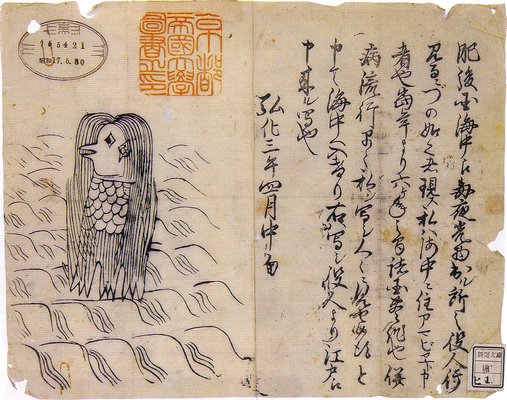 肥後国海中え毎夜光物出ル所之役人行
見るニづの如く者現ス私ハ海中ニ住アマビヱト申
者也当年より六ヶ年之間諸国豊作也併
病流行早々私写シ人々ニ見せ候得と
申て海中へ入けり右ハ写シ役人より江戸え
申来ル写也
弘化三年四月中旬
京都
帝國大學
圖書之印
165421
昭和17.6.30
新聞文庫